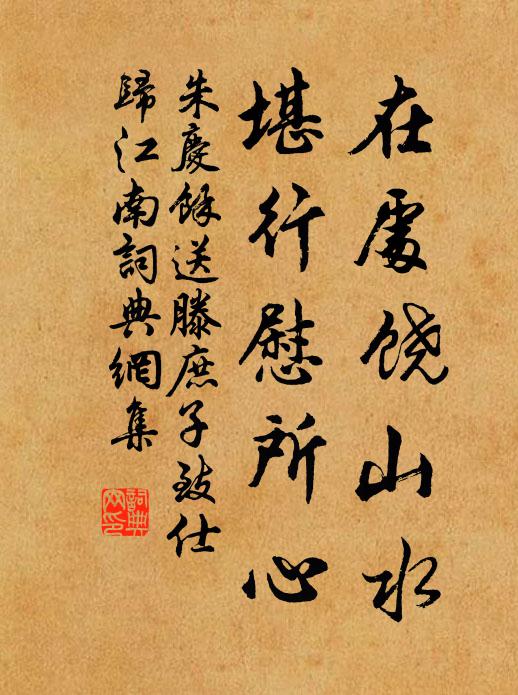 在處饒山水
堪行慰所心
朱慶餘送滕庶子致仕
歸江南詞典網集
詞典
网印